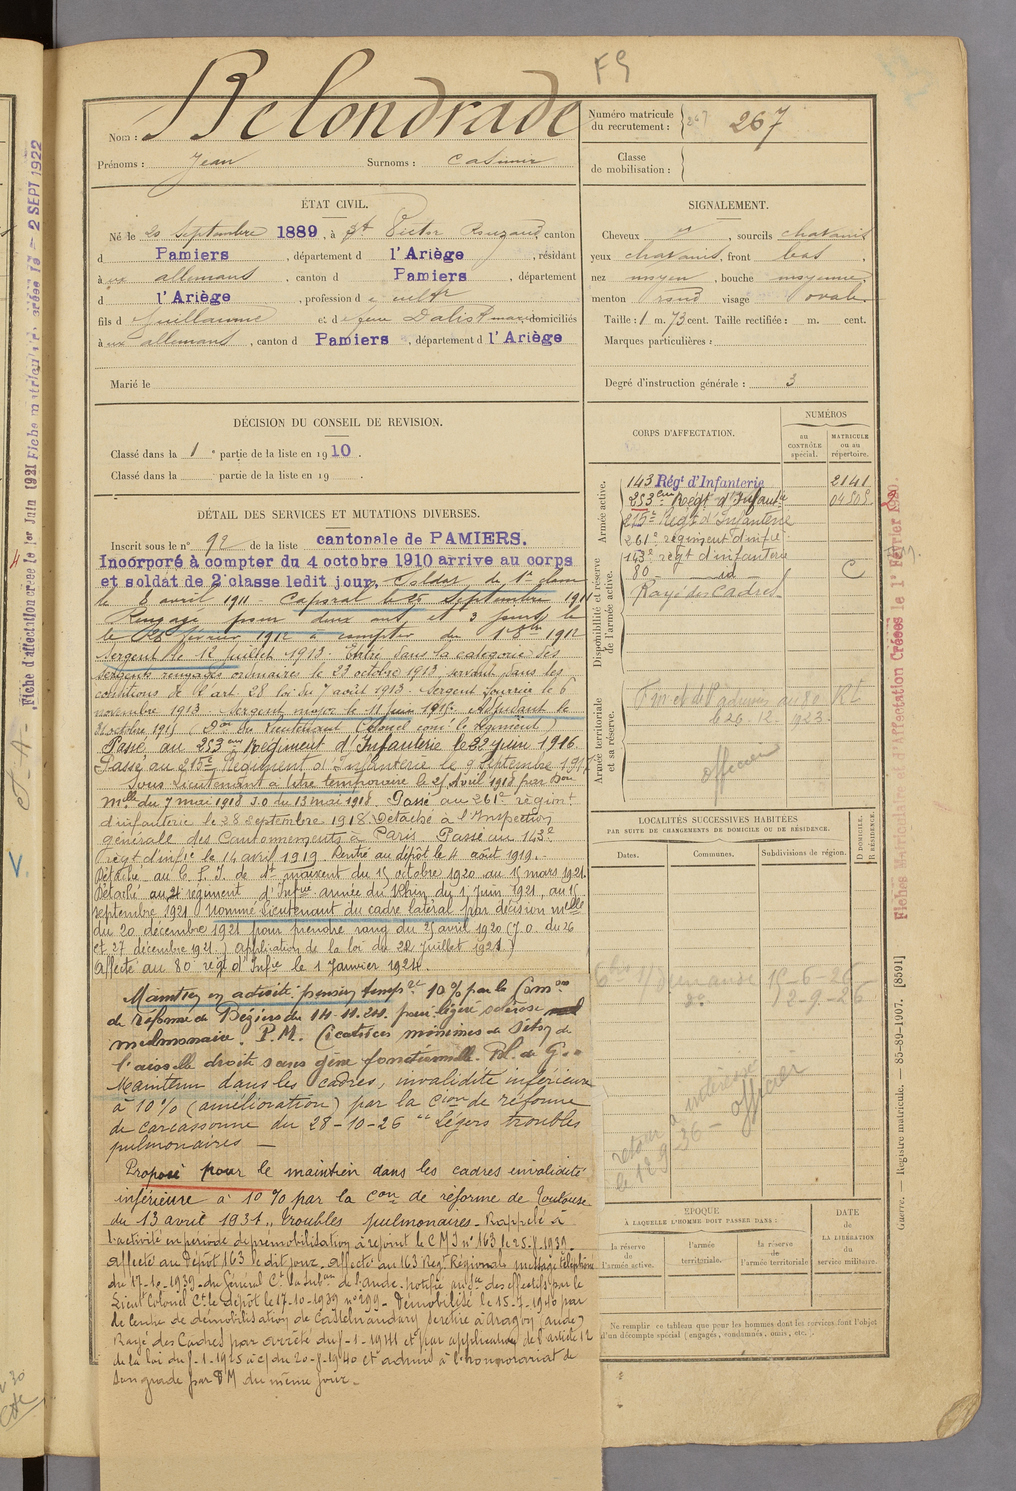 F 9
Nom : Belondrade
Prénoms : Jean Surnoms : Casimir
Numéro matricule du recrutement : 267 267
Classe de mobilisation :
ÉTAT CIVIL.
Né le 20 Septembre 1889, à St Victor Rouzaud canton
d Pamiers, département d l'Ariège, résidant
à ux allemans, canton d Pamiers, département
d l'Ariège, profession d e cultr
fils d Guillaume et d e feue Dalist domiciliés
à ux allemans, canton d Pamiers, département d l'Ariège
Marié le
SIGNALEMENT.
Cheveux et, sourcils chatains
yeux chatains, front bas,
nez moyen, bouche moyenne,
menton rond visage ovale.
Taille : 1 m. 73 cent. Taille rectifiée : m. cent.
Marques particulières :
Degré d'instruction générale : 3
DÉCISION DU CONSEIL DE REVISION.
Classé dans la 1e partie de la liste en 1910.
Classé dans la partie de la liste en 19 .
DÉTAIL DES SERVICES ET MUTATIONS DIVERSES.
Inscrit sous le n° 92 de la liste cantonale de PAMIERS.
Incorporé à compter du 4 octobre 1910 arrive au corps
et soldat de 2e classe ledit jour. Soldat de 1e classe
le 8 avril 1911. Caporal le 25 Septembre 1911
Rengagé pour deux ans et 3 jours le
le 26 février 1912 à compter du 1 8bre 1912
Sergent le 12 juillet 1913. Entré dans la catégorie des
sergents rengagés ordinaires le 23 octobre 1913 servant dans les
conditions de l'art. 28 loi du 7 août 1913. Sergent fourrier le 6
novembre 1913. Sergent major le 11 juin 1915. Adjudant le
21 octobre 1915 (Don du Lieutenant Colonel com. le Régiment)
Passé au 253eme Régiment d'Infanterie le 22 juin 1916.
Passé au 215e Régiment d'Infanterie le 9 Septembre 1917
Sous Lieutenant à titre temporaire le 25 Avril 1918 par Don
mlle du 7 mai 1918 J.O du 13 mai 1918. Passé au 261e régimt
d'infanterie le 28 septembre 1918. Détaché à l'Inspection
générale des Cantonnements à Paris. Passé au 143e
régt d'infie le 14 avril 1919. Rentré au dépôt le 4 août 1919.
Détaché au C. P. I. de St maixent du 15 octobre 1920 au 15 mars 1921.
Détaché au 21 régiment d'Infrie armée du Rhin du 1 juin 1921 au 15
septembre 1921. Nommé lieutenant du cadre latéral par décision mlle
du 20 décembre 1921 pour prendre rang du 25 avril 1920 (J.O. du 26
et 27 décembre 1921) (application de la loi du 22 juillet 1921)
Affecté au 80e régt d'Infie le 1 janvier 1924.
Maintenu en activité pension tempre 10% par la Comon
de réforme de Béziers du 14.11.24. pour légère sclérose
pulmonaire. P.M. Cicatrices minimes de Séton de
l'aisselle droite sans gêne fonctionnelle. Bl. de G.
Maintenu dans les cadres, invalidité inférieure
à 10% (amélioration) par la Cion de réforme
de Carcassonne du 28-10-26 "Légers troubles
pulmonaires —
Proposé pour le maintien dans les cadres invalidité
inférieure à 10% par la Con de réforme de Toulouse
du 13 avril 1931 "troubles pulmonaires. Rappelé à
l'activité en période de prémobilisation a rejoint le CMI n° 163 le 25-8-1939
affecté au Dépôt 163 le dit jour. affecté au 163 Reg. Régional message téléphoné
du 17-10-1939 du Général Ct la Subon de l'aude. notifié
Lieut Colonel Ct le dépôt le 17-10-1939 n° 299. Démobilisé le 15-7-1940 par
le centre de démobilisation de Castelnaudary. Se retire à dragon (aude)
Rayé des Cadres par arrêté du 5-1-1941 et par application de l'article 12
de la loi du 8-1-1925 à c/ du 20-8-1940 et admis à l'honorariat de
son grade par DM du même jour.
CORPS D'AFFECTATION.
NUMÉROS
au CONTRÔLE spécial.
MATRICULE ou au répertoire.
Armée active.
143 Régt d'Infanterie 2141
253eme Régt d'Infantie 04505
215e Régt d'Infanterie
261e régiment d'infie
Disponibilité et réserve de l'armée active.
143e régt d'infanterie
80 — id — C
Rayé des Cadres
Armée territoriale et sa réserve.
le 26.12.1923
officier
LOCALITÉS SUCCESSIVES HABITÉES
PAR SUITE DE CHANGEMENTS DE DOMICILE OU DE RÉSIDENCE.
Dates. Communes. Subdivisions de région. D DOMICILE. R RÉSIDENCE.
demande 15-6-26
do 12-9-26
retour à intéressé
le 12 9 36 — officier
ÉPOQUE
À LAQUELLE L'HOMME DOIT PASSER DANS :
la réserve de l'armée active.
l'armée territoriale.
la réserve de l'armée territoriale
DATE de LA LIBÉRATION du service militaire.
Ne remplir ce tableau que pour les hommes dont les services font l'objet
d'un décompte spécial (engagés, condamnés, omis, etc.).
Guerre. — Registre matricule. — 85-89-1907. [8591]
Fiches Matriculaire et d'Affectation Créées le 1er Février 1920.
Fiche d'affectation créée le 1er Juin 1921
Fiche matriculaire créée le - 2 SEPT 1922